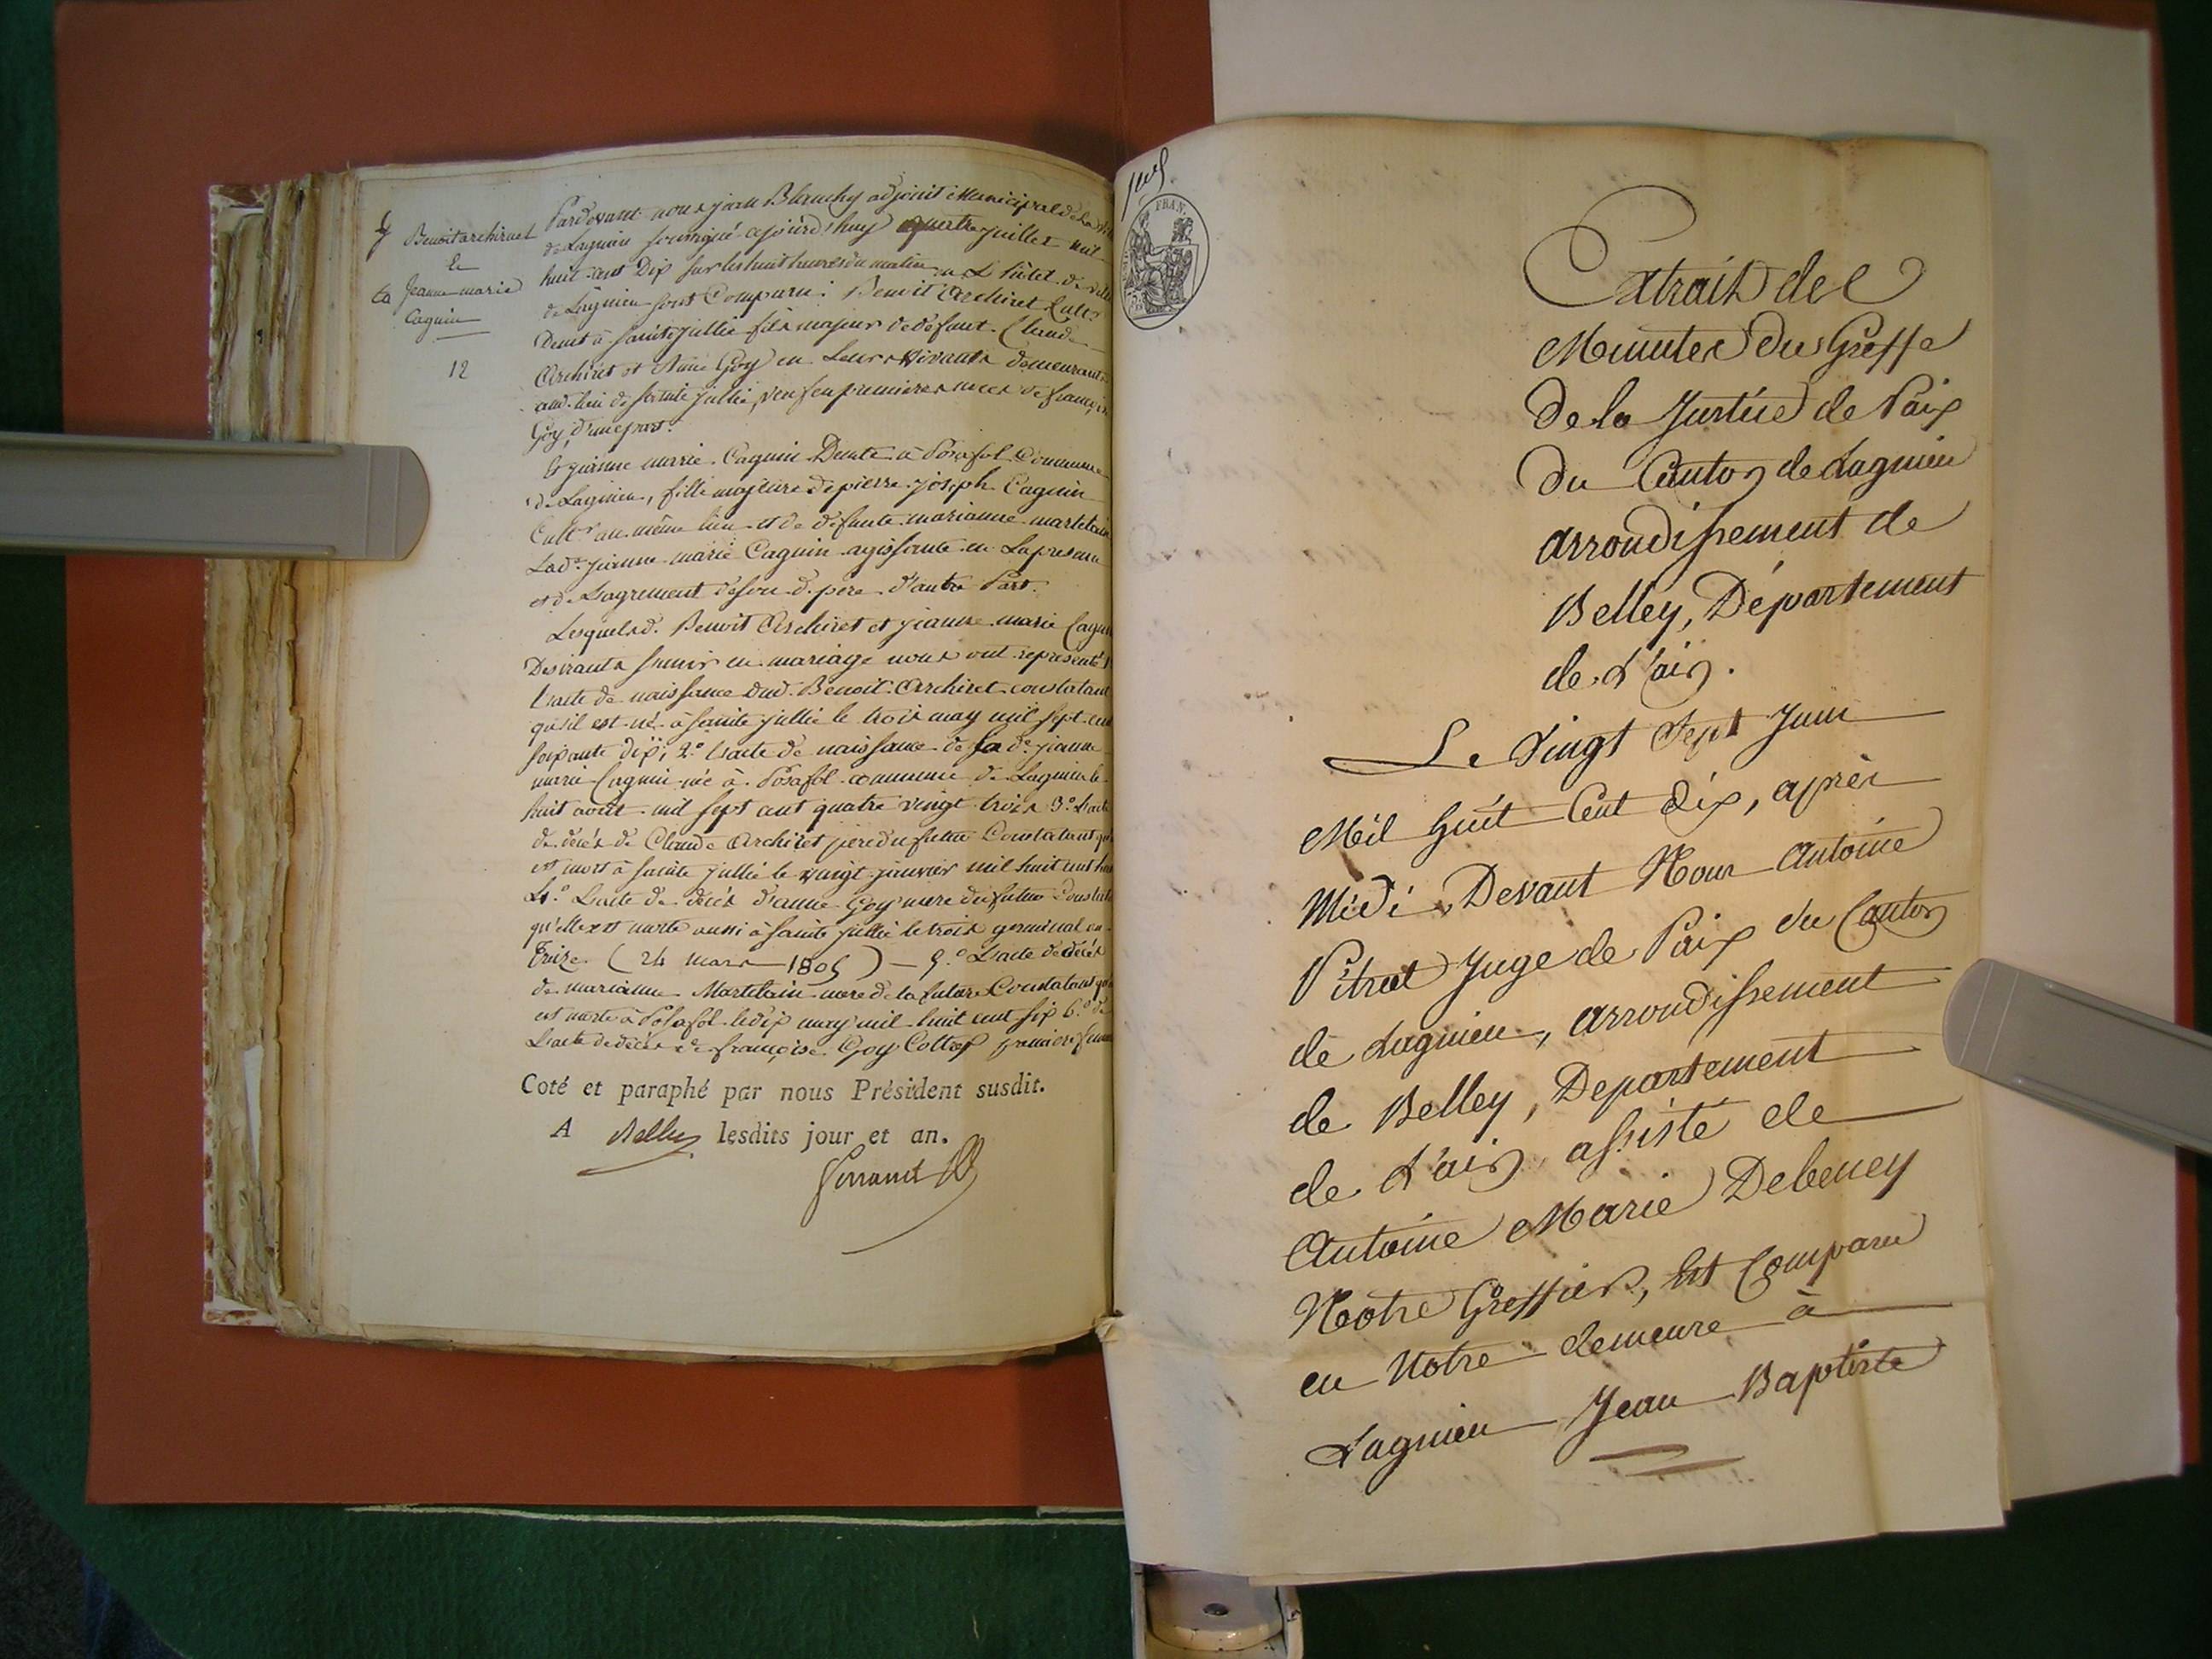 Benoit archiret
et
Jeanne marie
Caguin
12
Pardevant nous jean Blanchy adjoint Municipal de la
de Lagnieu soussigné ajourd'huy quatre juillet mil
huit cent Dix sur les huit heures du matin a L'hôtel de ville
de Lagnieu sont Comparu : Benoit Archiret Cultr
Demt à Sainte jullie fils majeur de défunt Claude
Archiret et Anne Goy en Leurs vivants demeurant
aud. lieu de Sainte jullie, veuf en premieres noces de françoise
Goy, d'une part.
Et jeanne marie Caguin Demte à Posafol Commune
de Lagnieu, fille majeure de pierre joseph Caguin
Cultr au même lieu et de défunte marianne martelain
Lade jeanne marie Caguin agissante en La presence
et de Lagrement de son d. père d'autre Part.
Lesquels d. Benoit Archiret et jeanne marie Caguin
Desirants s'unir en mariage nous ont representé 1
L'acte de naissance dud. Benoit Archiret constatant
qu'il est né à sainte jullie le trois may mil sept cent
soixante dix; 2.º L'acte de naissance de la de jeanne
marie Caguin née à Posafol commune de Lagnieu le
huit aout mil sept cent quatre vingt trois 3.º L'acte
de décès de Claude Archiret père du futur Constatant qu'
est mort à sainte jullie le vingt janvier mil huit cent
4.º L'acte de décès d'anne Goy mere du futur Constatant
qu'elle est morte aussi à sainte jullie le trois germinal an
Treize (24 mars 1805) — 5.º L'acte de décès
de marianne Martelain mere de la future Constatant qu'
est morte à Posafol le dix may mil huit cent six 6.º de
L'acte de décès de françoise Goy Collet premiere femme
Coté et paraphé par nous Président susdit.
A Belley lesdits jour et an.
FRAN.
Extrait des
Minutes du Greffe
De la Justice de Paix
Du Canton de Lagnieu
arrondissement de
Belley, Département
de L'ain.
Le Vingt Sept Juin
Mil huit Cent dix, après
Midi, Devant Nous Antoine
Vitrat Juge de Paix du Canton
de Lagnieu, arrondissement
de Belley, Departement
de L'ain, assisté de
Antoine Marie Debeney
Notre Greffier, Est Comparu
en Notre demeure à
Lagnieu Jean Baptiste